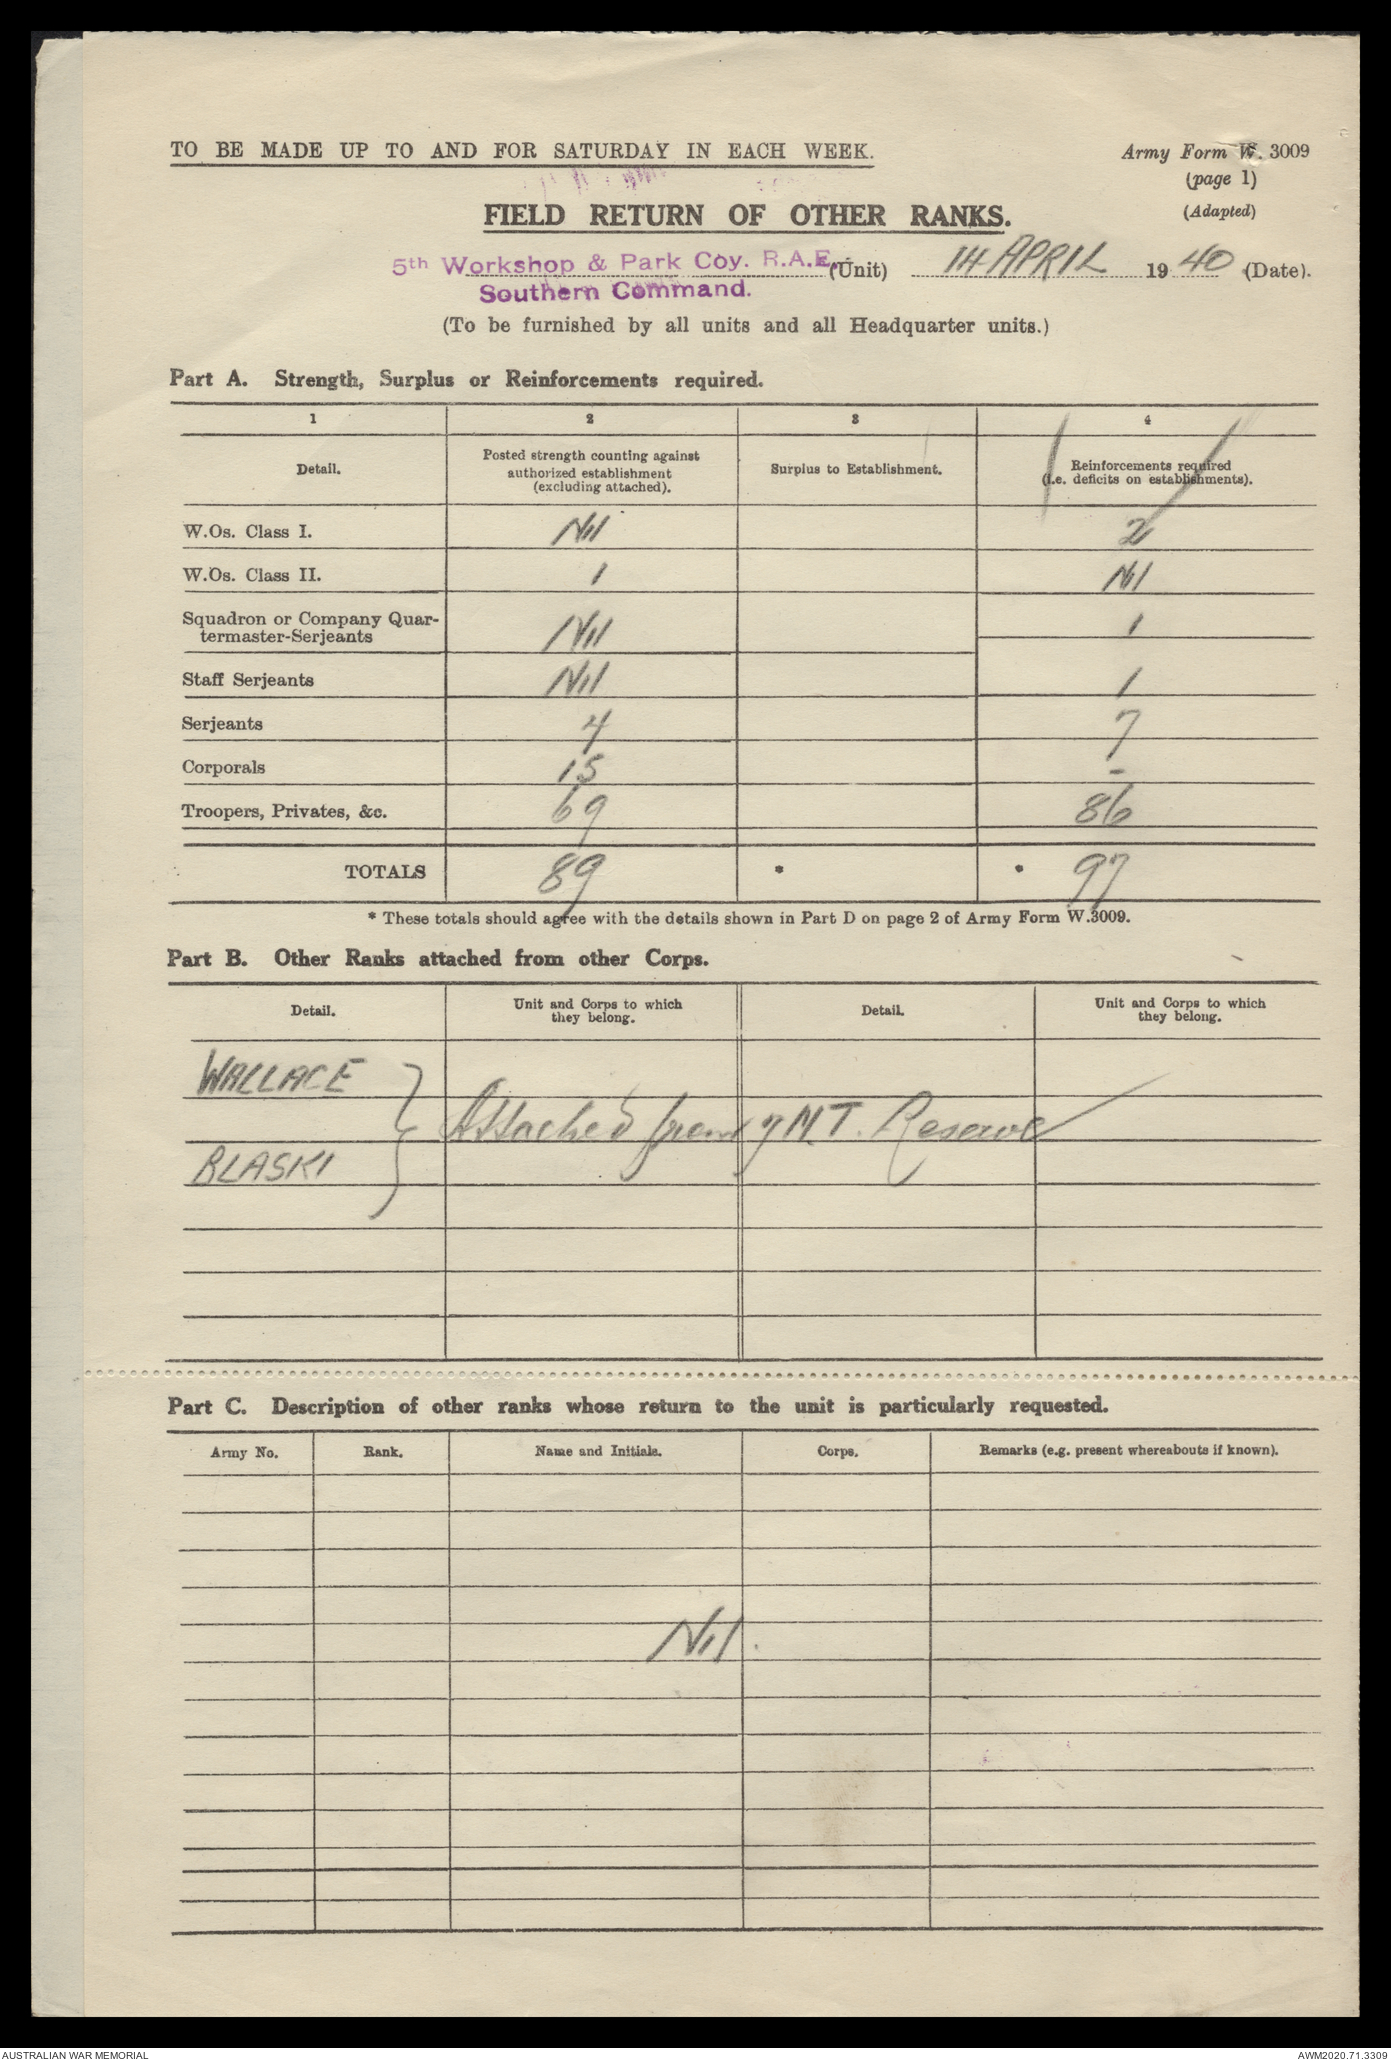 TO BE MADE UP TO AND FOR SATURDAY IN EACH WEEK.
Army Form W. 3009
(page 1)
(Adapted)
FIELD RETURN OF OTHER RANKS.
5th Workshop & Park Coy. R.A.E. (Unit) 14 APRIL 19 40 (Date).
Southern Command.
(To be furnished by all units and all Headquarter units.)
Part A. Strength, Surplus or Reinforcements required.
1 2 3 4
Detail.
Posted strength counting against
authorized establishment
(excluding attached).
Surplus to Establishment.
Reinforcements required
(i.e. deficits on establishments).
W.Os. Class I. Nil 2
W.Os. Class II. 1 Nil
Squadron or Company Quar-
termaster-Serjeants Nil 1
Staff Serjeants Nil 1
Serjeants 4 7
Corporals 15 -
Troopers, Privates, &c. 69 86
TOTALS 89 * * 97
* These totals should agree with the details shown in Part D on page 2 of Army Form W.3009.
Part B. Other Ranks attached from other Corps.
Detail.
Unit and Corps to which
they belong.
Detail.
Unit and Corps to which
they belong.
WALLACE
Attached from 7 M.T. Reserve
BLASKI
Part C. Description of other ranks whose return to the unit is particularly requested.
Army No. Rank. Name and Initials. Corps. Remarks (e.g. present whereabouts if known).
Nil.
AUSTRALIAN WAR MEMORIAL
AWM2020.71.3309